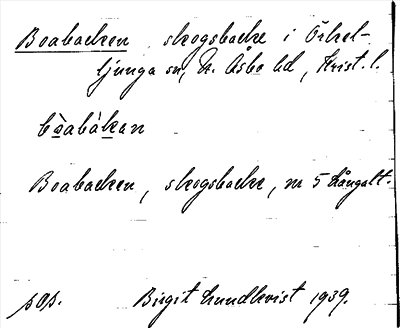 Boabacken, skogsbacke i Örkel-
ljunga sn, N. Åsbo hd, Krist. l.
Boabacken, skogsbacke, nr 5 Långalt.
Birgit Lundkvist 1939.